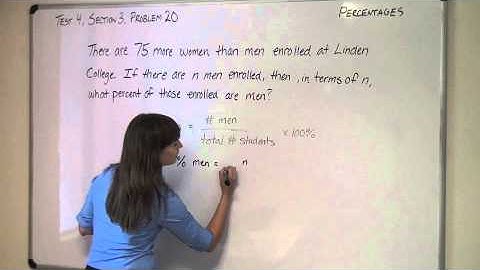 TEST 4, SECTION 3, PROBLEM 20
PERCENTAGES
There are 75 more women than men enrolled at Linden
College. If there are n men enrolled, then, in terms of n,
what percent of those enrolled are men?
= # men
total # students × 100%
% men = n